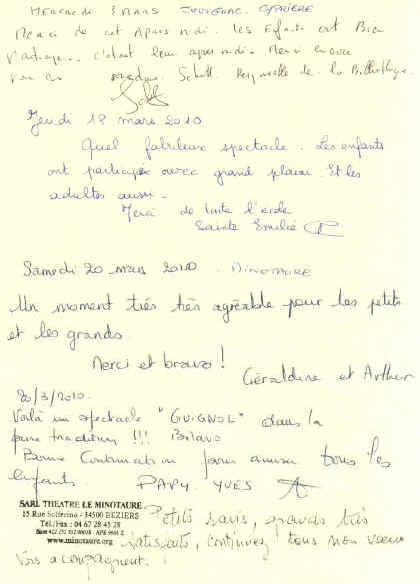 MERCREDI 3 MARS JUVIGNAC CYPRIERE
Merci de cet Après midi. Les Enfants ont Bien
Participer. c'était leur après midi. Merci encore
Madame Responsable de la Bibliothèque.
Jeudi 18 mars 2010
Quel fabuleux spectacle. Les enfants
ont participés avec grand plaisir. Et les
adultes aussi.
Merci de toute l'école
Sainte Emilie
Samedi 20 mars 2010. MINOTAURE
Un moment très très agréable pour les petits
et les grands.
Merci et bravo!
Géraldine et Arthur
20/3/2010.
Voilà un spectacle "GUIGNOL" dans la
pure tradition !!! Bravo
Bonne Continuation pour amuser tous les
enfants. PAPY YVES
SARL THEATRE LE MINOTAURE
15 Rue Solférino - 34500 BEZIERS
Tél./Fax : 04 67 28 43 28
www.minotaure.org
Petits ravis, grands très
satisfaits, continuez tous nos vœux
Vous accompagnent.